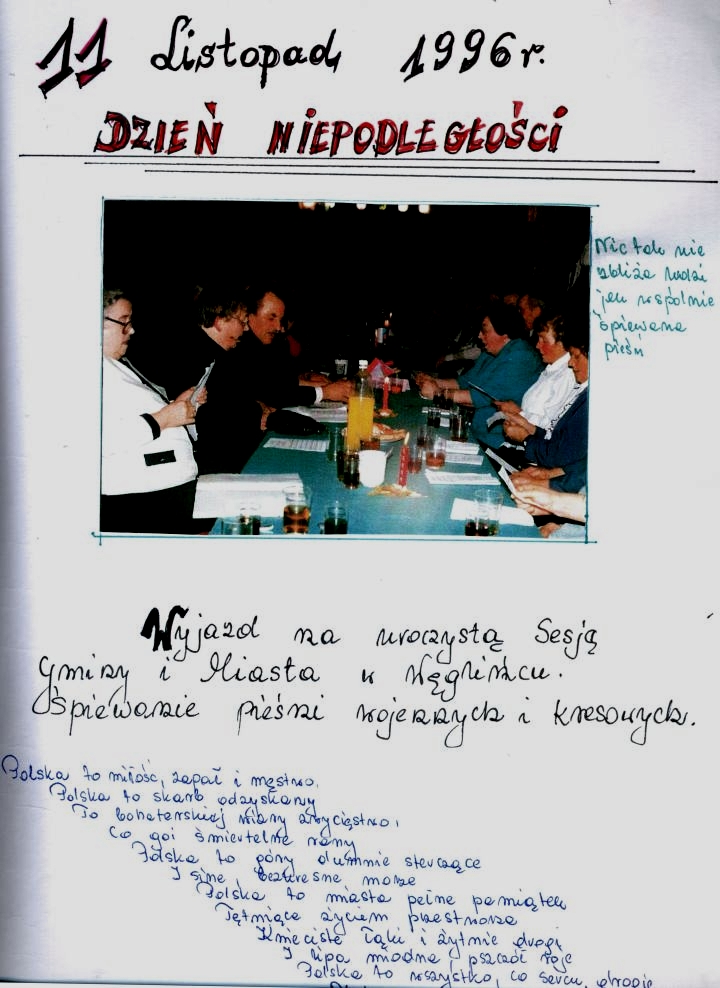 11 Listopad 1996 r.
DZIEŃ NIEPODLEGŁOŚCI
Nic tak nie
zbliża ludzi
jak wspólnie
śpiewana
pieśń
Wyjazd na uroczystą Sesję
Gminy i Miasta w Węglińcu.
Śpiewanie pieśni wojennych i kresowych.
Polska to miłość, zapał i męstwo,
Polska to skarb odzyskany
To bohaterskiej wiary zwycięstwo,
Co goi śmiertelne rany
Polska to góry dumnie sterczące
I sine, bezkresne morze
Polska to miasta pełne pamiątek
Tętniące życiem przestworza
Kwieciste łąki i żytnie drogi
I lipa miodna, pszczół roje
Polska to wszystko, co sercu drogie